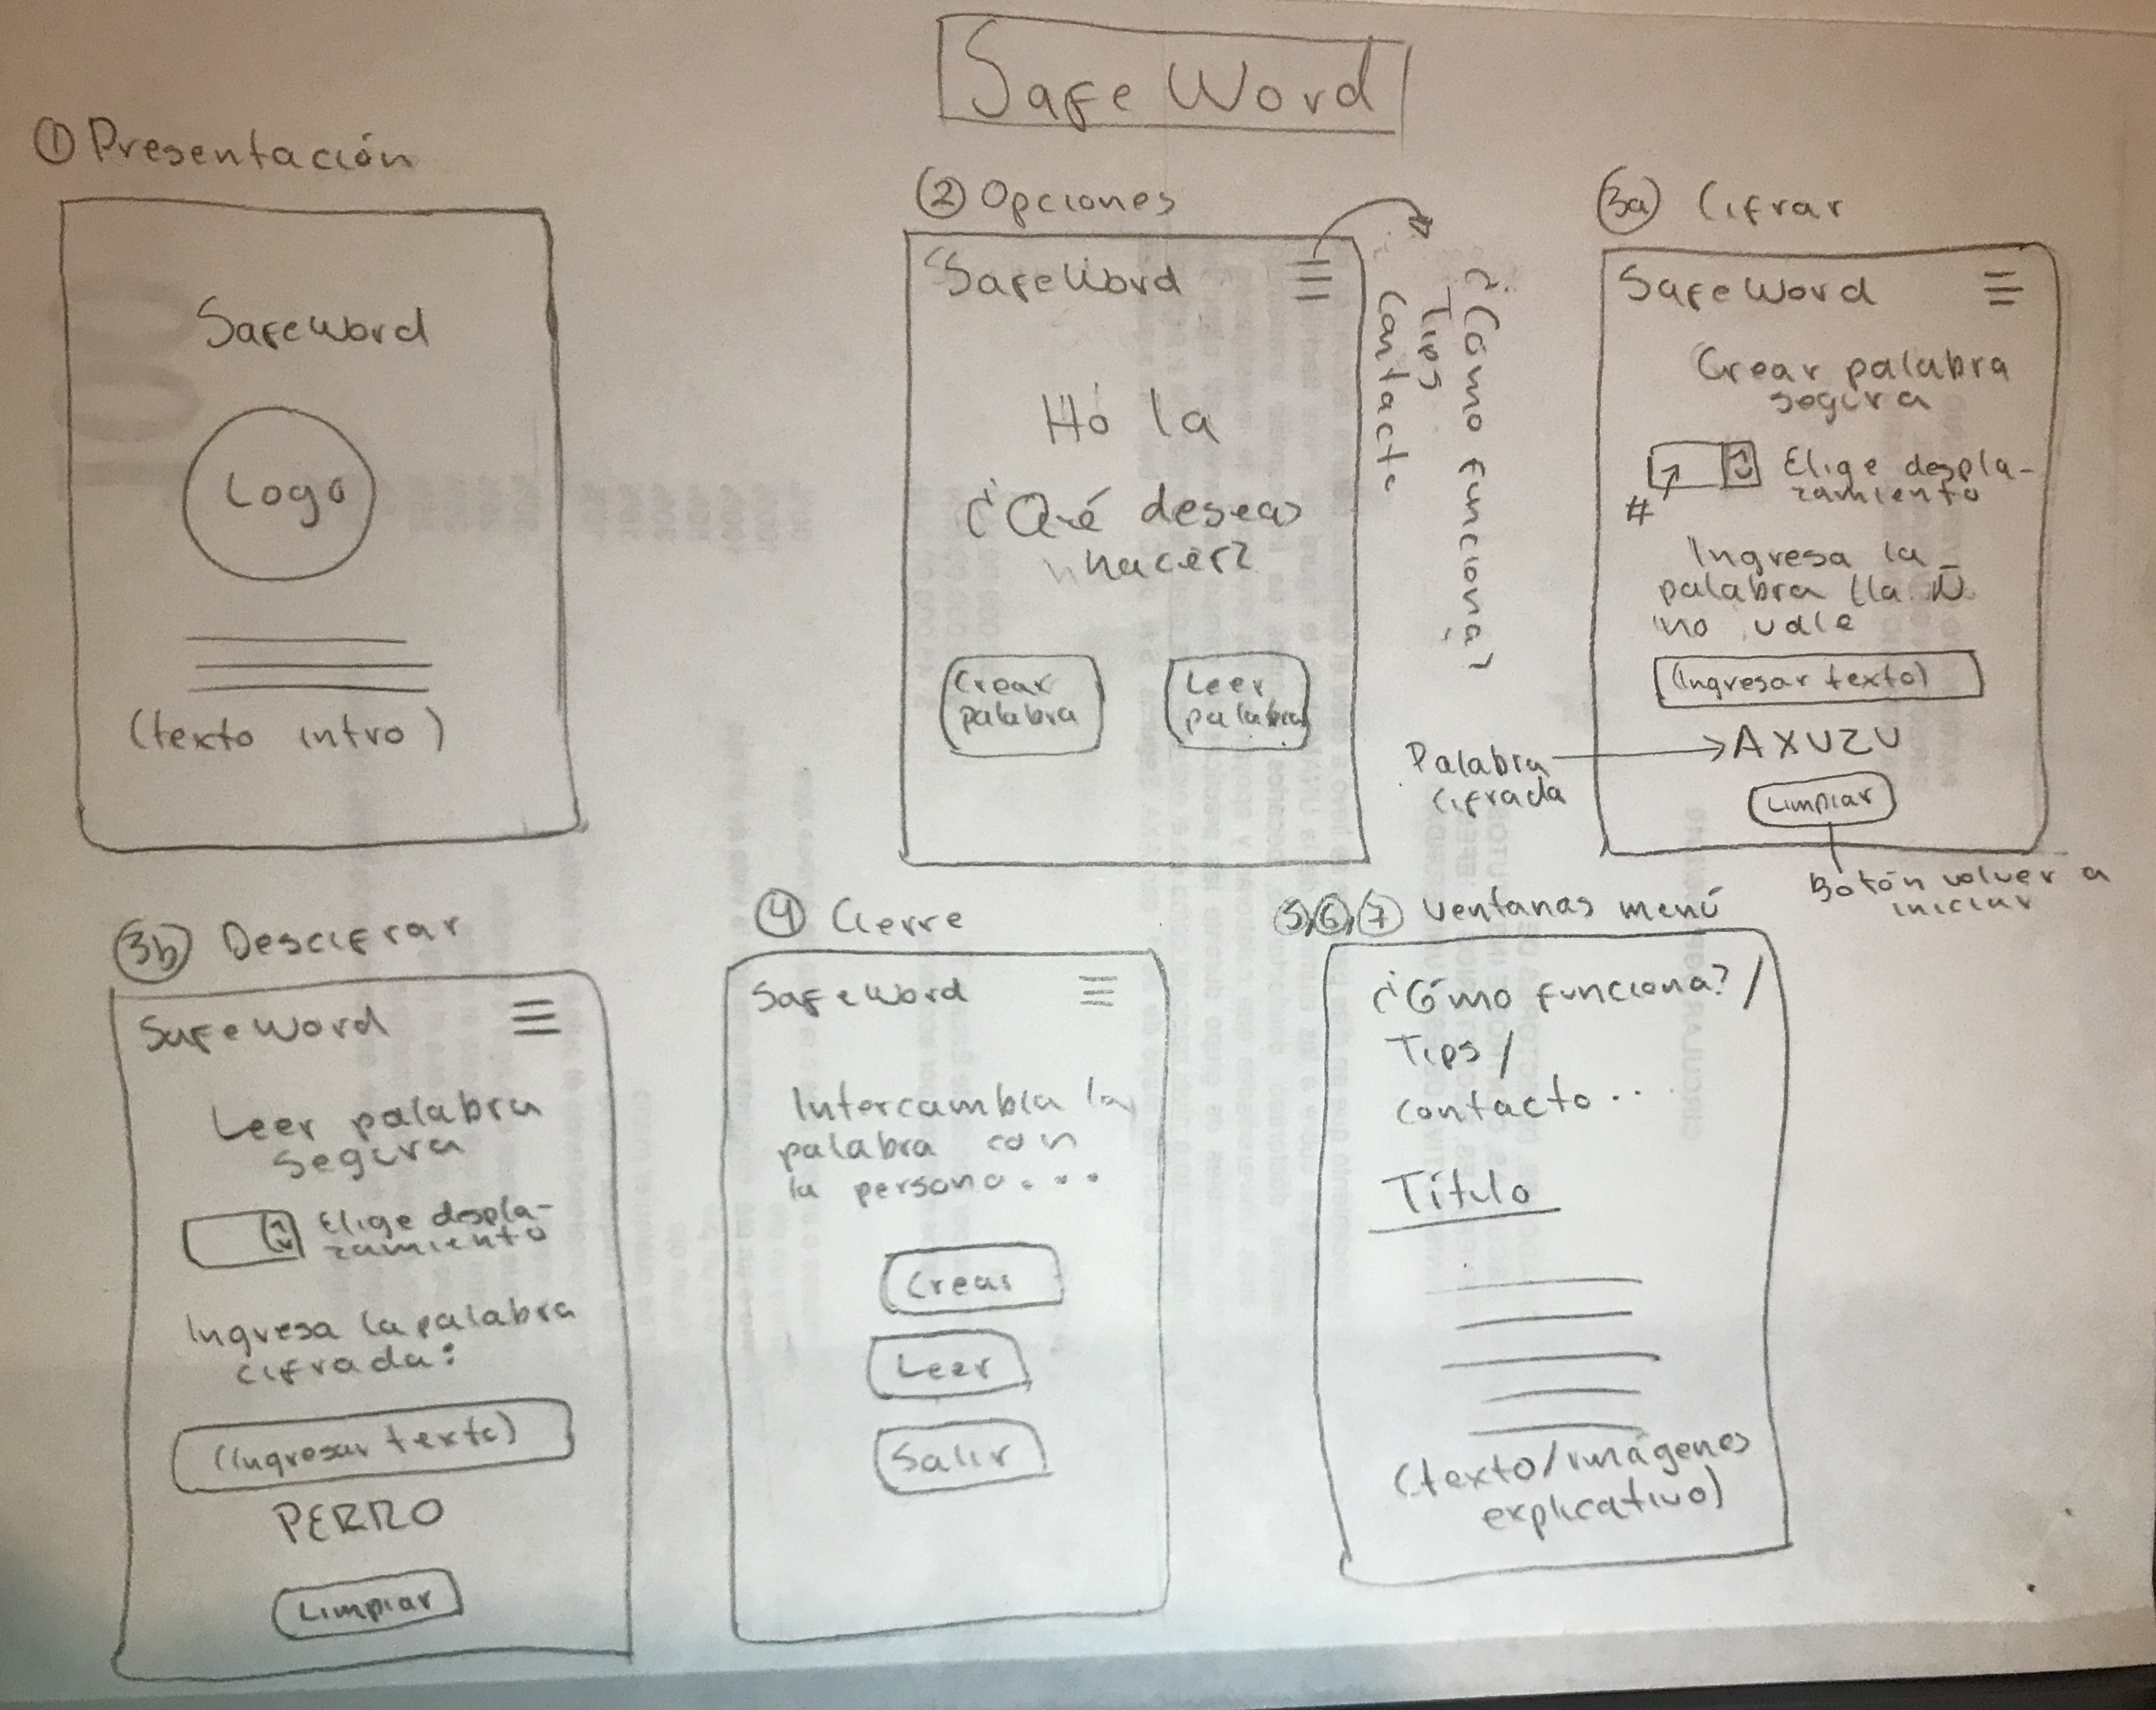 SafeWord
① Presentación
SafeWord
Logo
(texto intro)
② Opciones
SafeWord
Hola
¿Qué deseas
hacer?
Crear
palabra
Leer
palabra
¿Cómo funciona?
Tips
Contacto
3a Cifrar
SafeWord
Crear palabra
segura
#
Elige despla-
zamiento
Ingresa la
palabra (la Ñ
no vale
(Ingresar texto)
Palabra
cifrada
AXUZU
Limpiar
Botón volver a
iniciar
3b Descifrar
SafeWord
Leer palabra
segura
Elige despla-
zamiento
Ingresa la palabra
cifrada:
(Ingresar texto)
PERRO
Limpiar
④ Cierre
SafeWord
Intercambia la
palabra con
la persona...
Crear
Leer
Salir
5,6,7 Ventanas menú
¿Cómo funciona? /
Tips /
contacto..
Título
(texto/imágenes
explicativo)